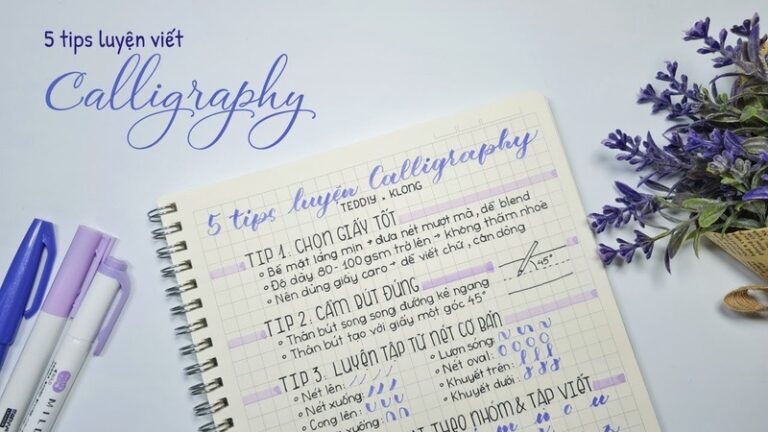 5 tips luyện viết
Calligraphy
5 tips luyện Calligraphy
TEDDIY . KLONG
TIP 1. CHỌN GIẤY TỐT
Bề mặt láng mịn → đưa nét mượt mà, dễ blend
Độ dày 80-100gsm trở lên → không thấm nhoè
Nên dùng giấy caro → dễ viết chữ, căn dòng
TIP 2. CẦM BÚT ĐÚNG
Thân bút song song đường kẻ ngang
Thân bút tạo với giấy một góc 45°
45°
TIP 3. LUYỆN TẬP TỪ NÉT CƠ BẢN
Nét lên:
Nét xuống:
Cong lên:
Cong xuống:
Lượn sóng:
Nét oval:
Khuyết trên:
Khuyết dưới:
THEO NHÓM & TẬP VIẾT